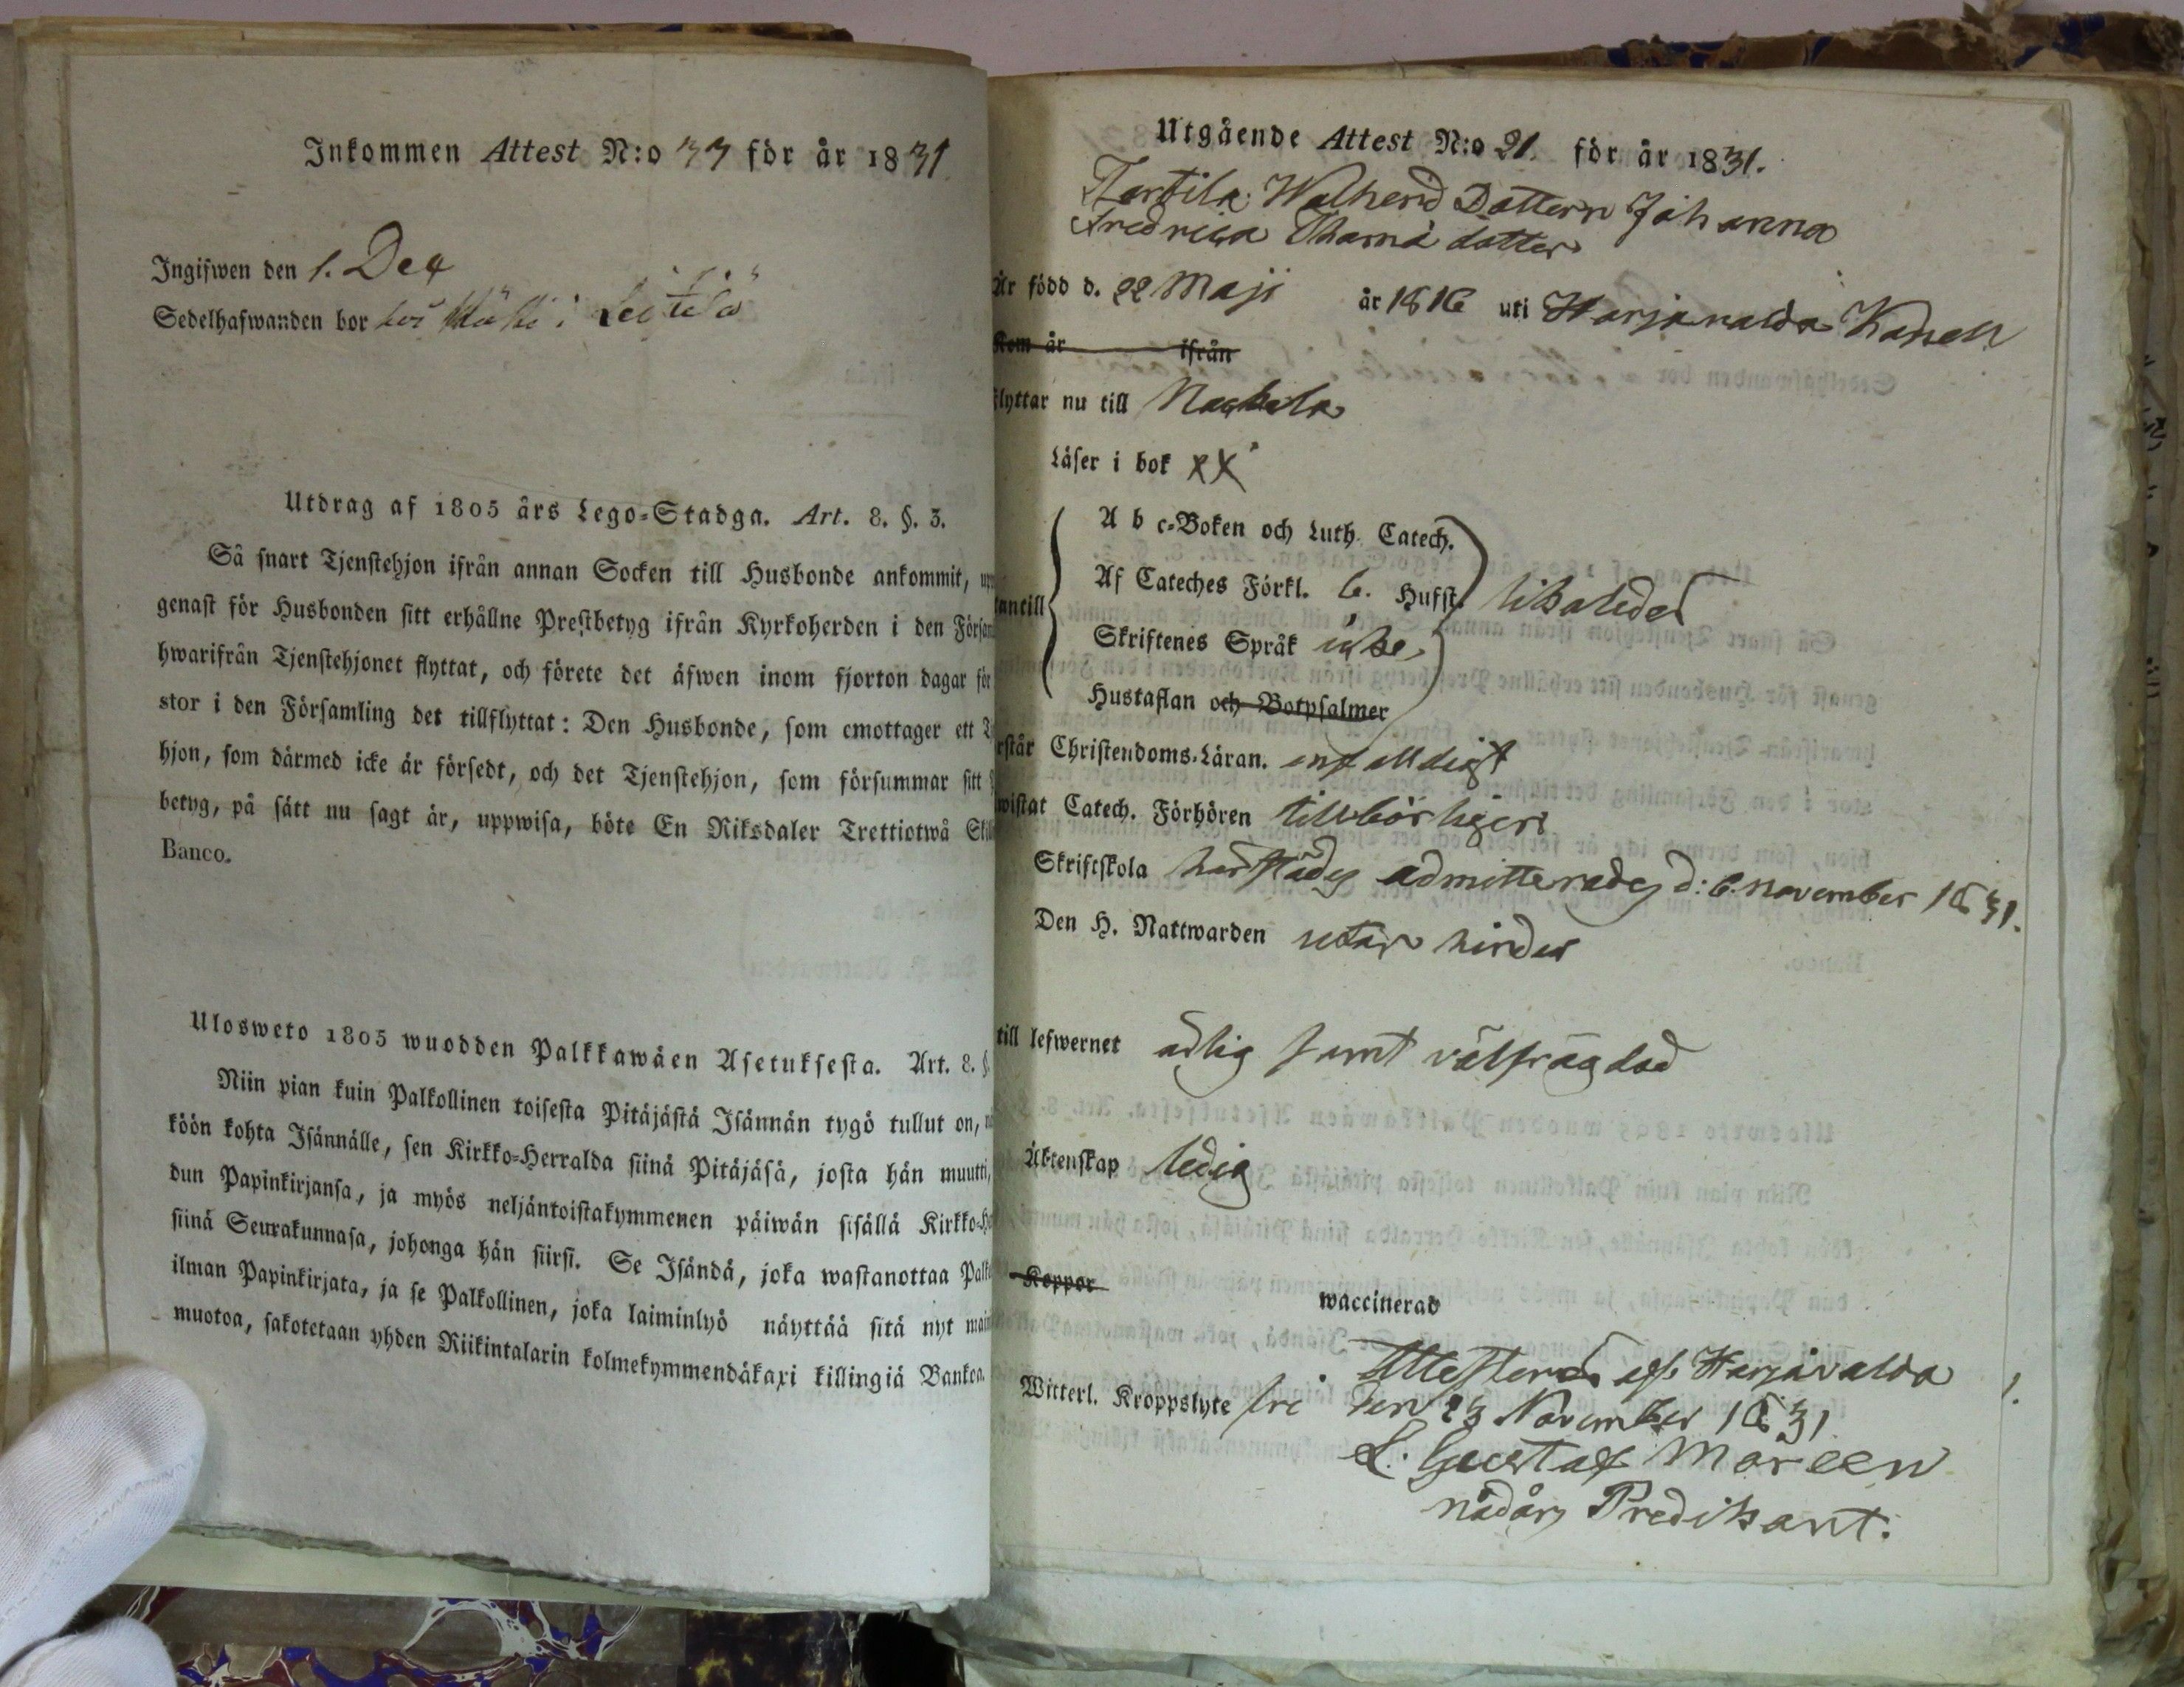 Inkommen Attest N:o 77 för år 1831
Ingifwen den 1. Dec
Sedelhafwanden bor hos i Leistilä
Utdrag af 1805 års Lego-Stadga. Art. 8. §. 3.
Så snart Tjenstehjon ifrån annan Socken till Husbonde ankommit, upp
genast för Husbonden sitt erhållne Prestbetyg ifrån Kyrkoherden i den Försam
hwarifrån Tjenstehjonet flyttat, och förete det äfwen inom fjorton dagar för
stor i den Församling det tillflyttat: Den Husbonde, som emottager ett T
hjon, som därmed icke är försedt, och det Tjenstehjon, som försummar sitt
betyg, på sätt nu sagt är, uppwisa, böte En Riksdaler Trettiotwå Skill
Banco.
Ulosweto 1805 wuodden Palkkawäen Asetuksesta. Art. 8. §.
Niin pian kuin Palkollinen toisesta Pitäjästä Isännän tygö tullut on, n
köön kohta Isännälle, sen Kirkko-Herralda siinä Pitäjäsä, josta hän muutti,
dun Papinkirjansa, ja myös neljäntoistakymmenen päiwän sisällä Kirkko-He
siinä Seurakunnasa, johonga hän siirsi. Se Isändä, joka wastanottaa Palko
ilman Papinkirjata, ja se Palkollinen, joka laiminlyö näyttää sitä nyt main
muotoa, sakotetaan yhden Riikintalarin kolmekymmendäkaxi killingiä Bankoa.
Utgående Attest N:o 21. för år 1831.
Torttila Dottern Johanna
Fredrica Thomä dotter
Är född d. 22 Maji år 1816 uti Harjavalda Kapell
Kom år ifrån
flyttar nu till Nackila
Läser i bok XX
A b c-Boken och Luth. Catech.
Af Cateches Förkl. 6. Husst. likaledes
antill
Skriftenes Språk icke
Hustaflan och Botpsalmer
rstår Christendoms-Läran. enfalldigt
wistat Catech. Förhören tillbörligen
Skriftskola härstädes admitterades d: 6. november 1831.
Den H. Nattwarden utan hinder
till lefwernet ärlig samt välfrägdad
Äktenskap ledig
Koppor waccinerad
Witterl. Kroppslyte fri Attesterad af Harjavalda
den 23 November 1831
L. Gustaf Moreen
nådårs Predikant.